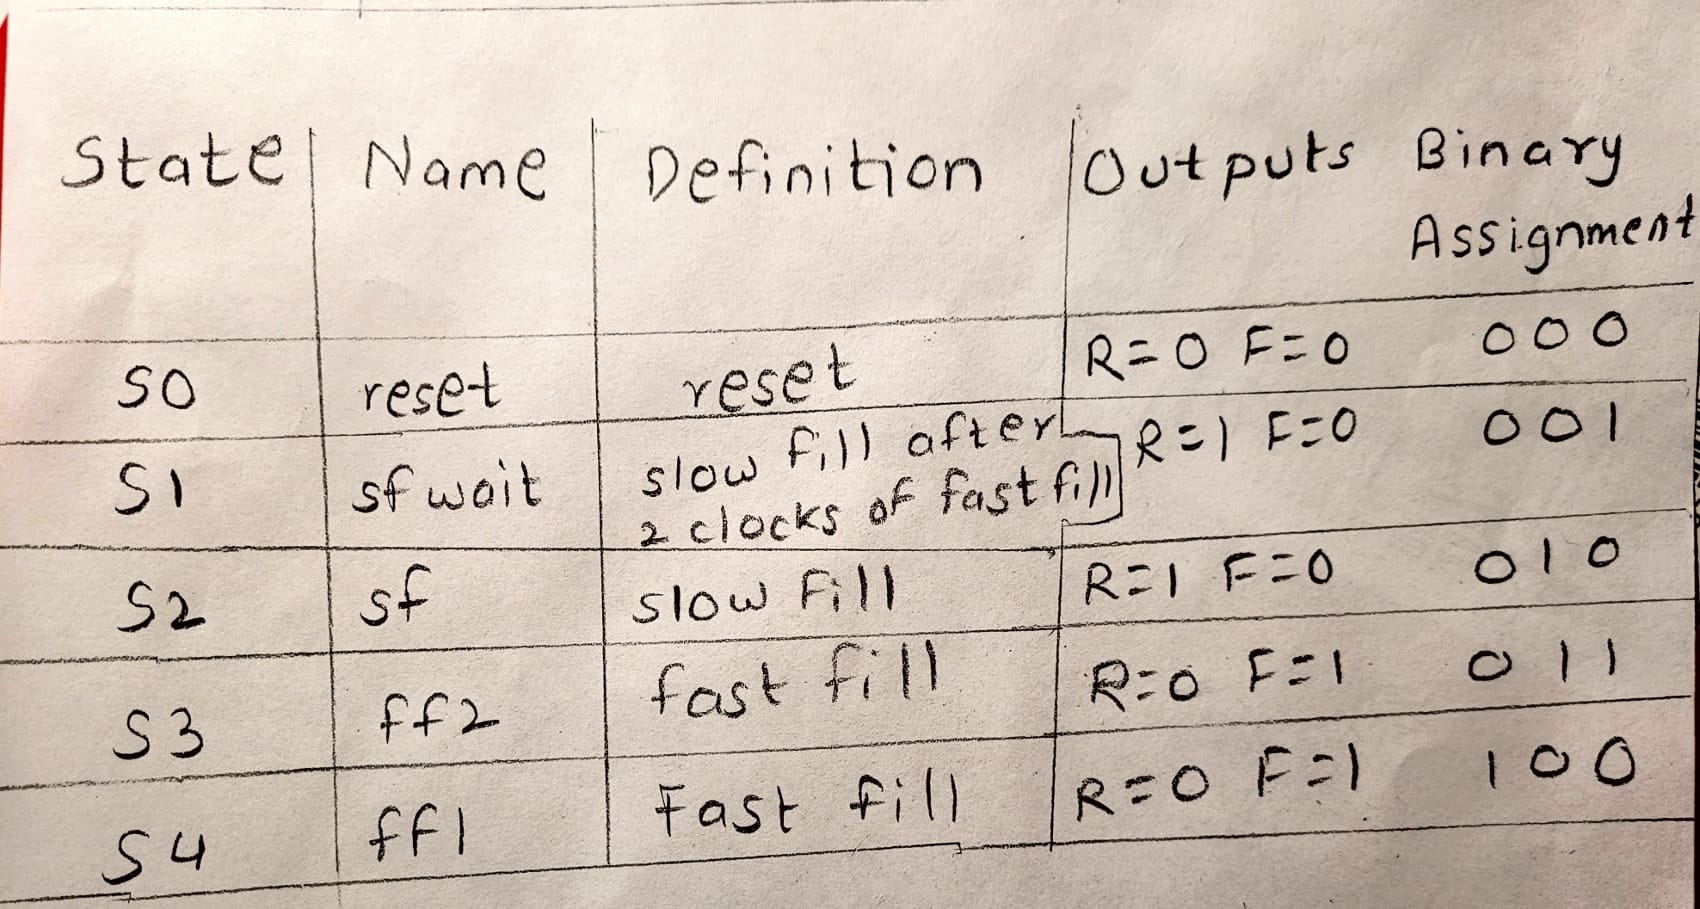 State Name Definition Outputs Binary
Assignment
S0 reset reset R=0 F=0 000
S1 sfwait slow fill after R=1 F=0 001
2 clocks of fast fill
S2 sf slow Fill R=1 F=0 010
S3 ff2 fast fill R=0 F=1 011
S4 ff1 Fast fill R=0 F=1 100